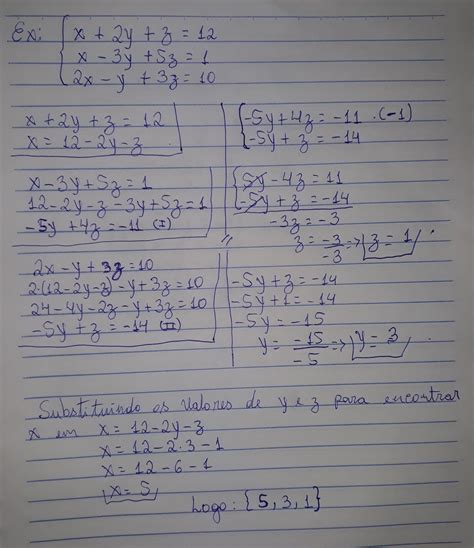 Ex: { x + 2y + z = 12
x - 3y + 5z = 1
2x - y + 3z = 10
x + 2y + z = 12
x = 12 - 2y - z
x - 3y + 5z = 1
12 - 2y - z - 3y + 5z = 1
-5y + 4z = -11 (I)
2x - y + 3z = 10
2·(12 - 2y - z) - y + 3z = 10
24 - 4y - 2z - y + 3z = 10
-5y + z = -14 (II)
{ -5y + 4z = -11 .(-1)
-5y + z = -14
{ 5y - 4z = 11
-5y + z = -14
-3z = -3
z = -3/-3 => z = 1
-5y + z = -14
-5y + 1 = -14
-5y = -15
y = -15/-5 => y = 3
Substituindo os valores de y e z para encontrar
x em x = 12 - 2y - z
x = 12 - 2·3 - 1
x = 12 - 6 - 1
x = 5
Logo: {5, 3, 1}